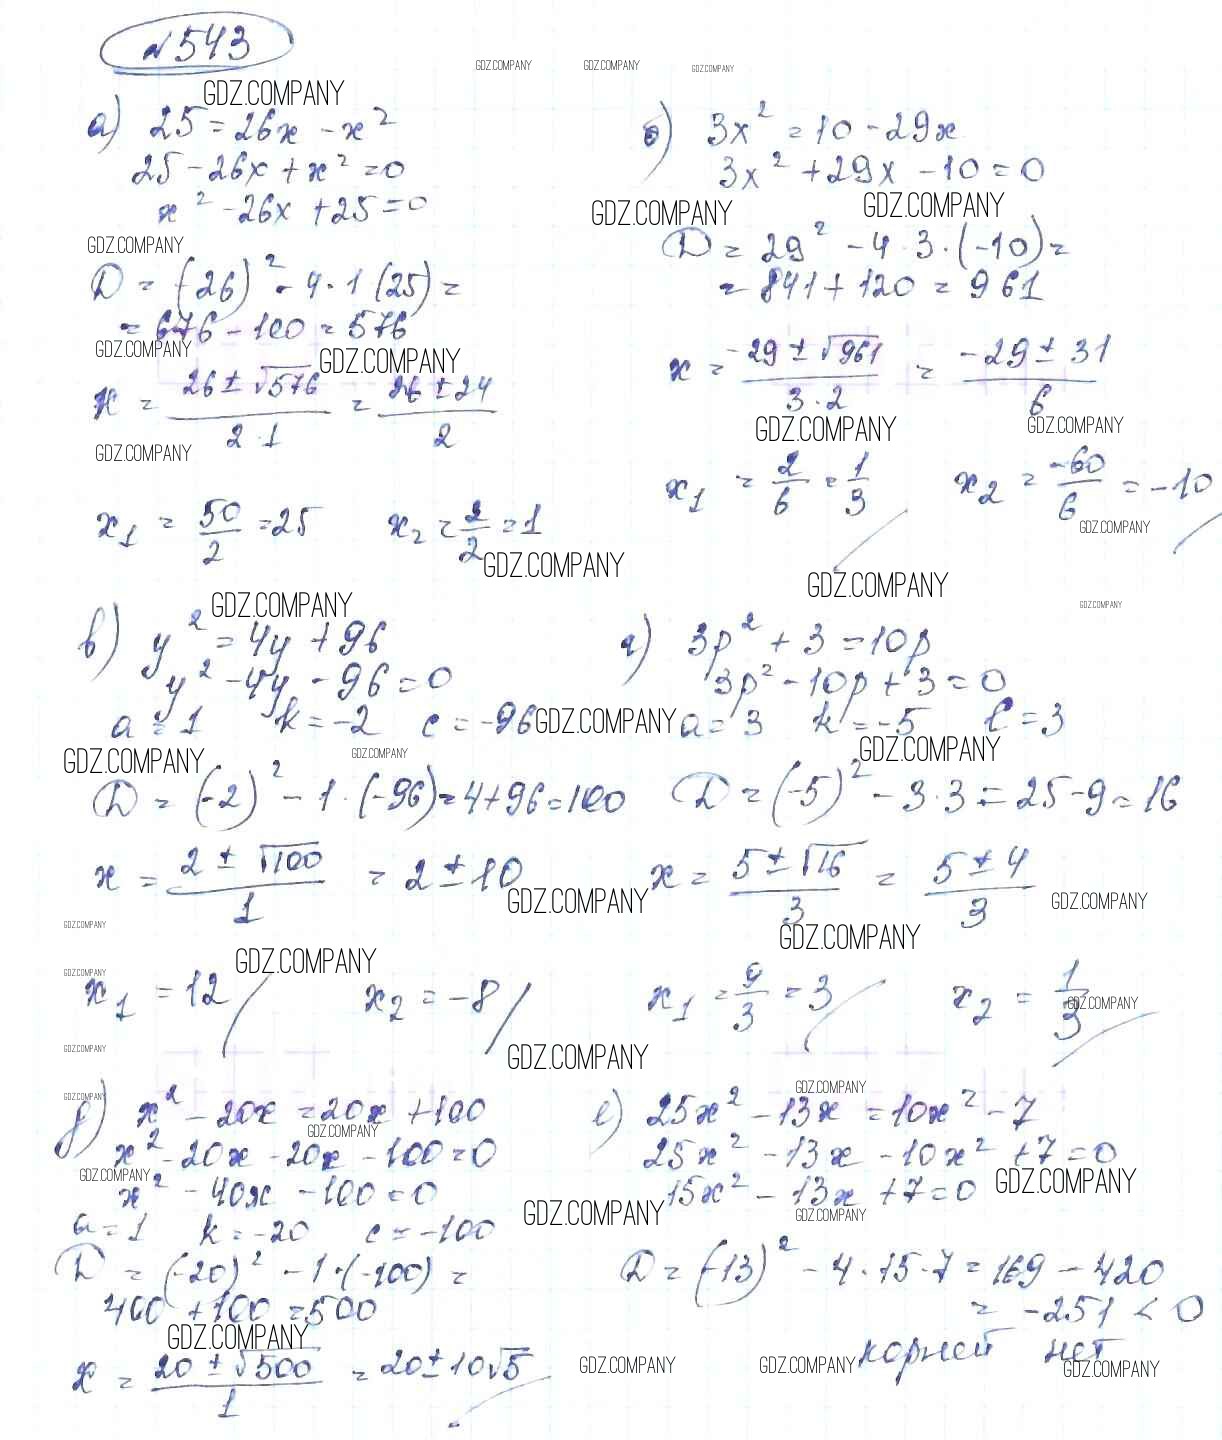 №543
GDZ.COMPANY GDZ.COMPANY GDZ.COMPANY
GDZ.COMPANY
а) 25 = 26x - x²
25 - 26x + x² = 0
x² - 26x + 25 = 0
GDZ.COMPANY
D = (26)² - 4·1(25) =
= 676 - 100 = 576
GDZ.COMPANY GDZ.COMPANY
x = (26 ± √576)/(2·1) = (26 ± 24)/2
GDZ.COMPANY
x₁ = 50/2 = 25 x₂ = 2/2 = 1
GDZ.COMPANY
б) 3x² = 10 - 29x
3x² + 29x - 10 = 0
GDZ.COMPANY GDZ.COMPANY
D = 29² - 4·3·(-10) =
= 841 + 120 = 961
x = (-29 ± √961)/(3·2) = (-29 ± 31)/6
GDZ.COMPANY GDZ.COMPANY
x₁ = 2/6 = 1/3 x₂ = -60/6 = -10
GDZ.COMPANY
GDZ.COMPANY GDZ.COMPANY
GDZ.COMPANY
в) y² = 4y + 96
y² - 4y - 96 = 0
a = 1 k = -2 c = -96
GDZ.COMPANY
GDZ.COMPANY GDZ.COMPANY
D = (-2)² - 1·(-96) = 4 + 96 = 100
x = (2 ± √100)/1 = 2 ± 10
GDZ.COMPANY
GDZ.COMPANY
GDZ.COMPANY GDZ.COMPANY
x₁ = 12 x₂ = -8
GDZ.COMPANY GDZ.COMPANY
г) 3p² + 3 = 10p
3p² - 10p + 3 = 0
a = 3 k = -5 c = 3
GDZ.COMPANY
D = (-5)² - 3·3 = 25 - 9 = 16
x = (5 ± √16)/3 = (5 ± 4)/3
GDZ.COMPANY
GDZ.COMPANY
x₁ = 9/3 = 3 x₂ = 1/3
GDZ.COMPANY
GDZ.COMPANY
д) x² - 20x = 20x + 100
GDZ.COMPANY
x² - 20x - 20x - 100 = 0
GDZ.COMPANY
x² - 40x - 100 = 0
a = 1 k = -20 c = -100
GDZ.COMPANY
D = (-20)² - 1·(-100) =
400 + 100 = 500
GDZ.COMPANY
x = (20 ± √500)/1 = 20 ± 10√5
GDZ.COMPANY
е) 25x² - 13x = 10x² - 7
25x² - 13x - 10x² + 7 = 0
15x² - 13x + 7 = 0
GDZ.COMPANY
GDZ.COMPANY
D = (-13)² - 4·15·7 = 169 - 420
= -251 < 0
корней нет
GDZ.COMPANY GDZ.COMPANY GDZ.COMPANY